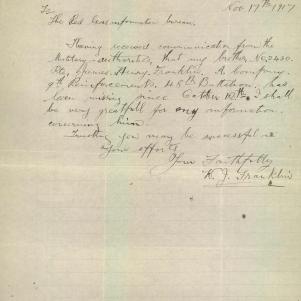 To Nov 17th 1917
The Red Cross information bureau.
Having received communication from the
Military authorities, that my brother No, 2430.
Pte, James. Henry. Franklin, A Company.
9th Reinforcements, 48th Battalion, has
been missing since October 12th, I shall
be very greatfull for any information
concerning him.
Trusting you may be successful in
your efforts
Your Faithfully
K. J. Franklin